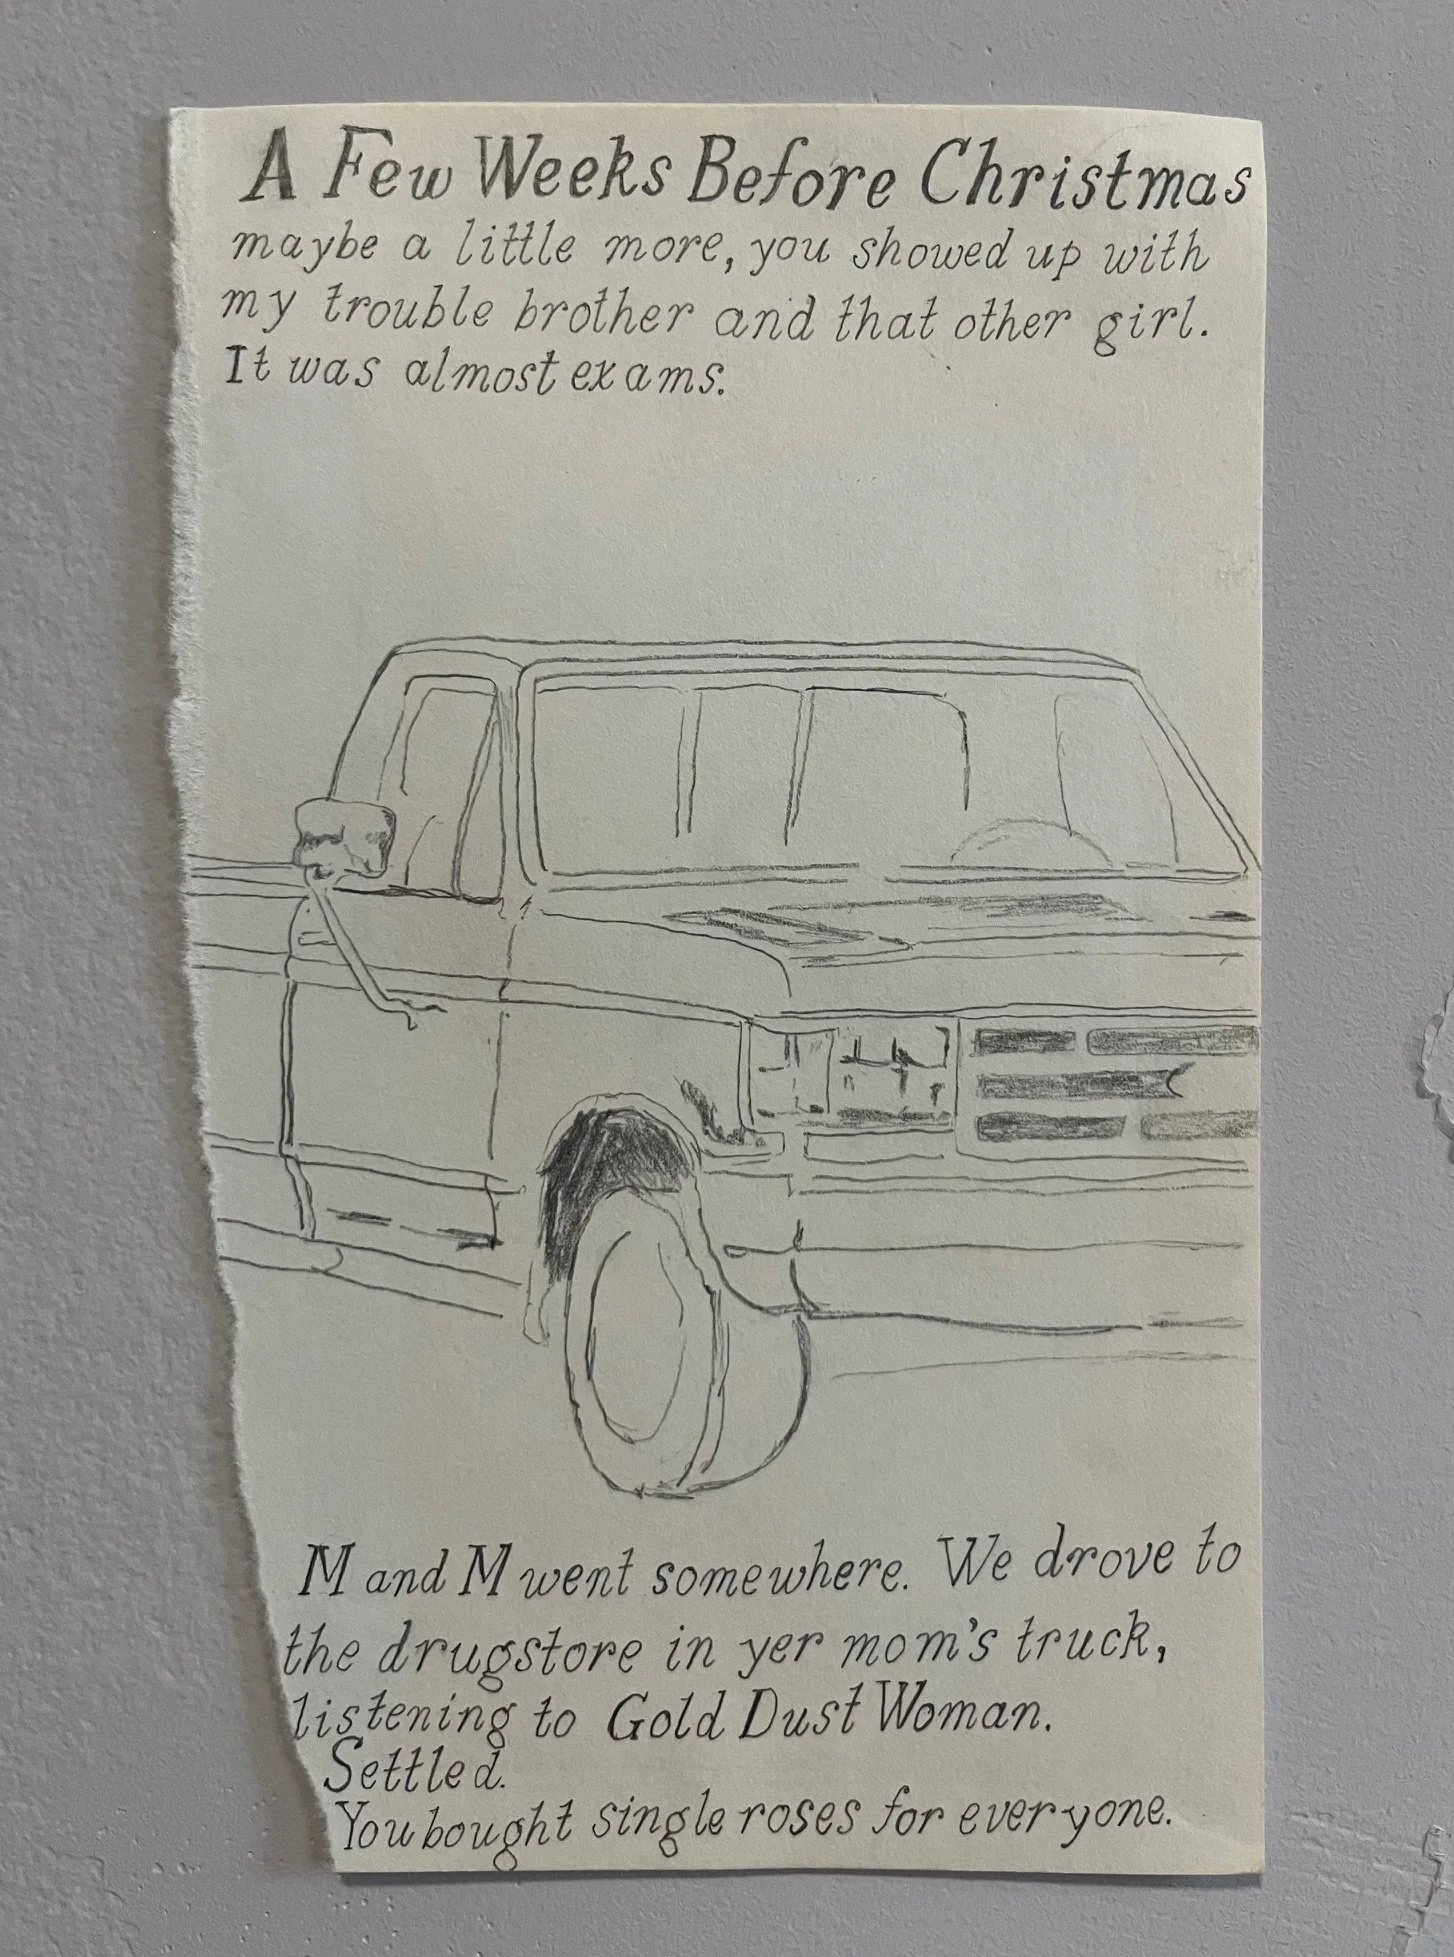 A Few Weeks Before Christmas
maybe a little more, you showed up with
my trouble brother and that other girl.
It was almost exams.
M and M went somewhere. We drove to
the drugstore in yer mom's truck,
listening to Gold Dust Woman.
Settled.
You bought single roses for everyone.